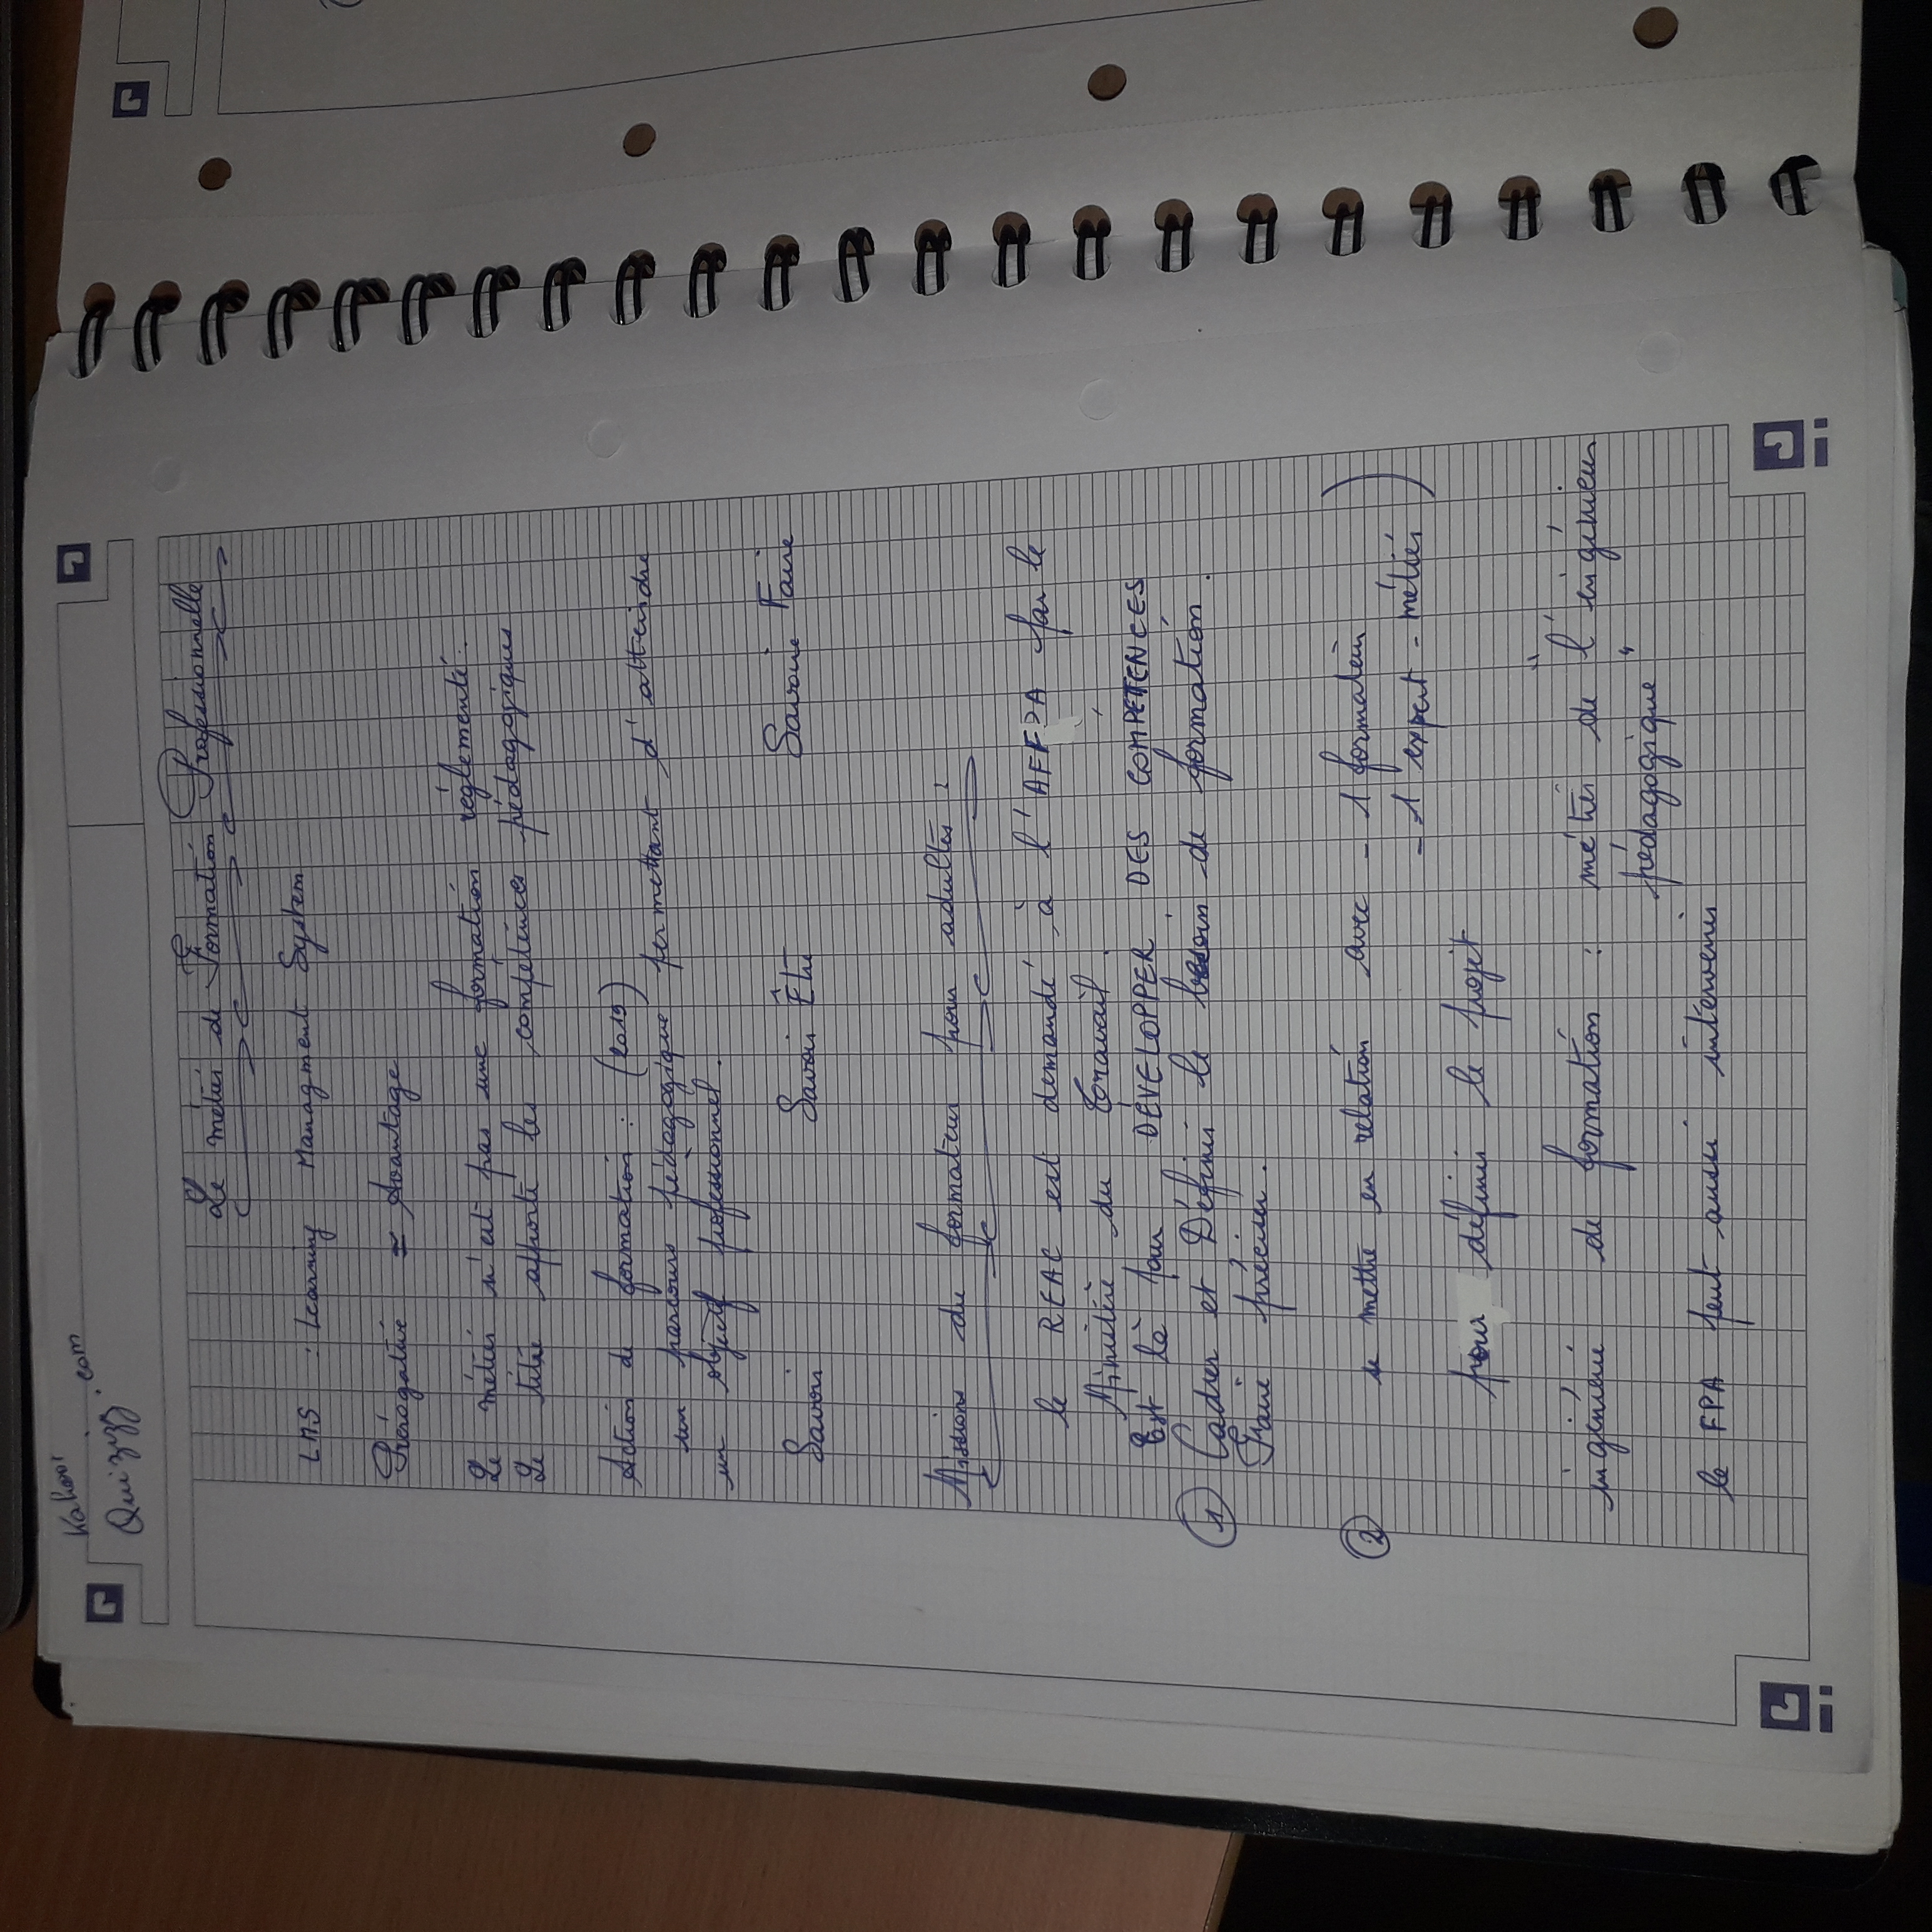 Kahoot
Quizizz.com
Le métier de Formation Professionnelle
LMS : Learning Managment System
Prérogative = Avantage
Le métier n'est pas une formation réglementé.
Le titre apporte les compétences pédagogiques
Action de formation : (2019)
un parcours pédagogique permettant d'atteindre
un objectif professionnel.
Savoir Savoir Être Savoire Faire
Missions du formateur pour adultes :
le REAC est demandé à l'AFPA par le
Ministère du Travail.
Est là pour DÉVELOPPER DES COMPÉTENCES
1 Cadrer et Définir le besoin de formation.
Faire préciser.
2 se mettre en relation avec - 1 formateur
- 1 expert - métier )
pour définir le projet
ingénierie de formation : métier de "l'ingénieur
pédagogique"
le FPA peut aussi intervenir